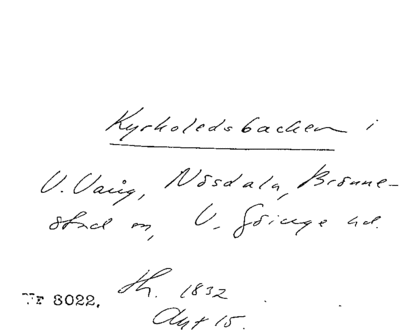 Kyrkoledsbacken i
V. Vång, Nösdala, Brönne-
stad sn, V. Göinge hd.
Nr 3022. Sk. 1832
Akt 15.